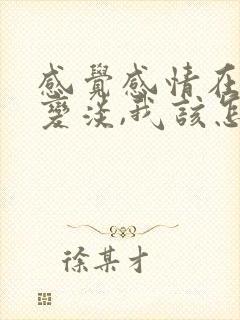 感覺感情在
變淡,我該怎
徐某才